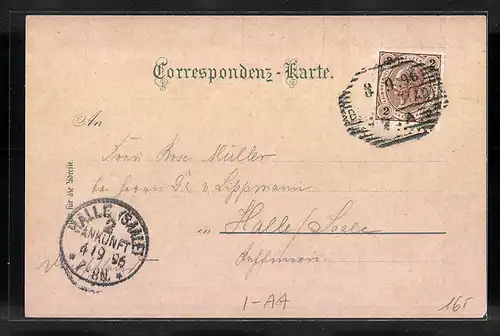 Correspondenz-Karte.
2 2
8 9. 96
An
Frau Rosa Müller
bei Herrn Dr. v. Lippmann
in Halle / Saale
Raffinerie.
Nur für die Adresse.
HALLE (SAALE)
2
ANKUNFT
4 9 96
7-8 N.
I-AA
165